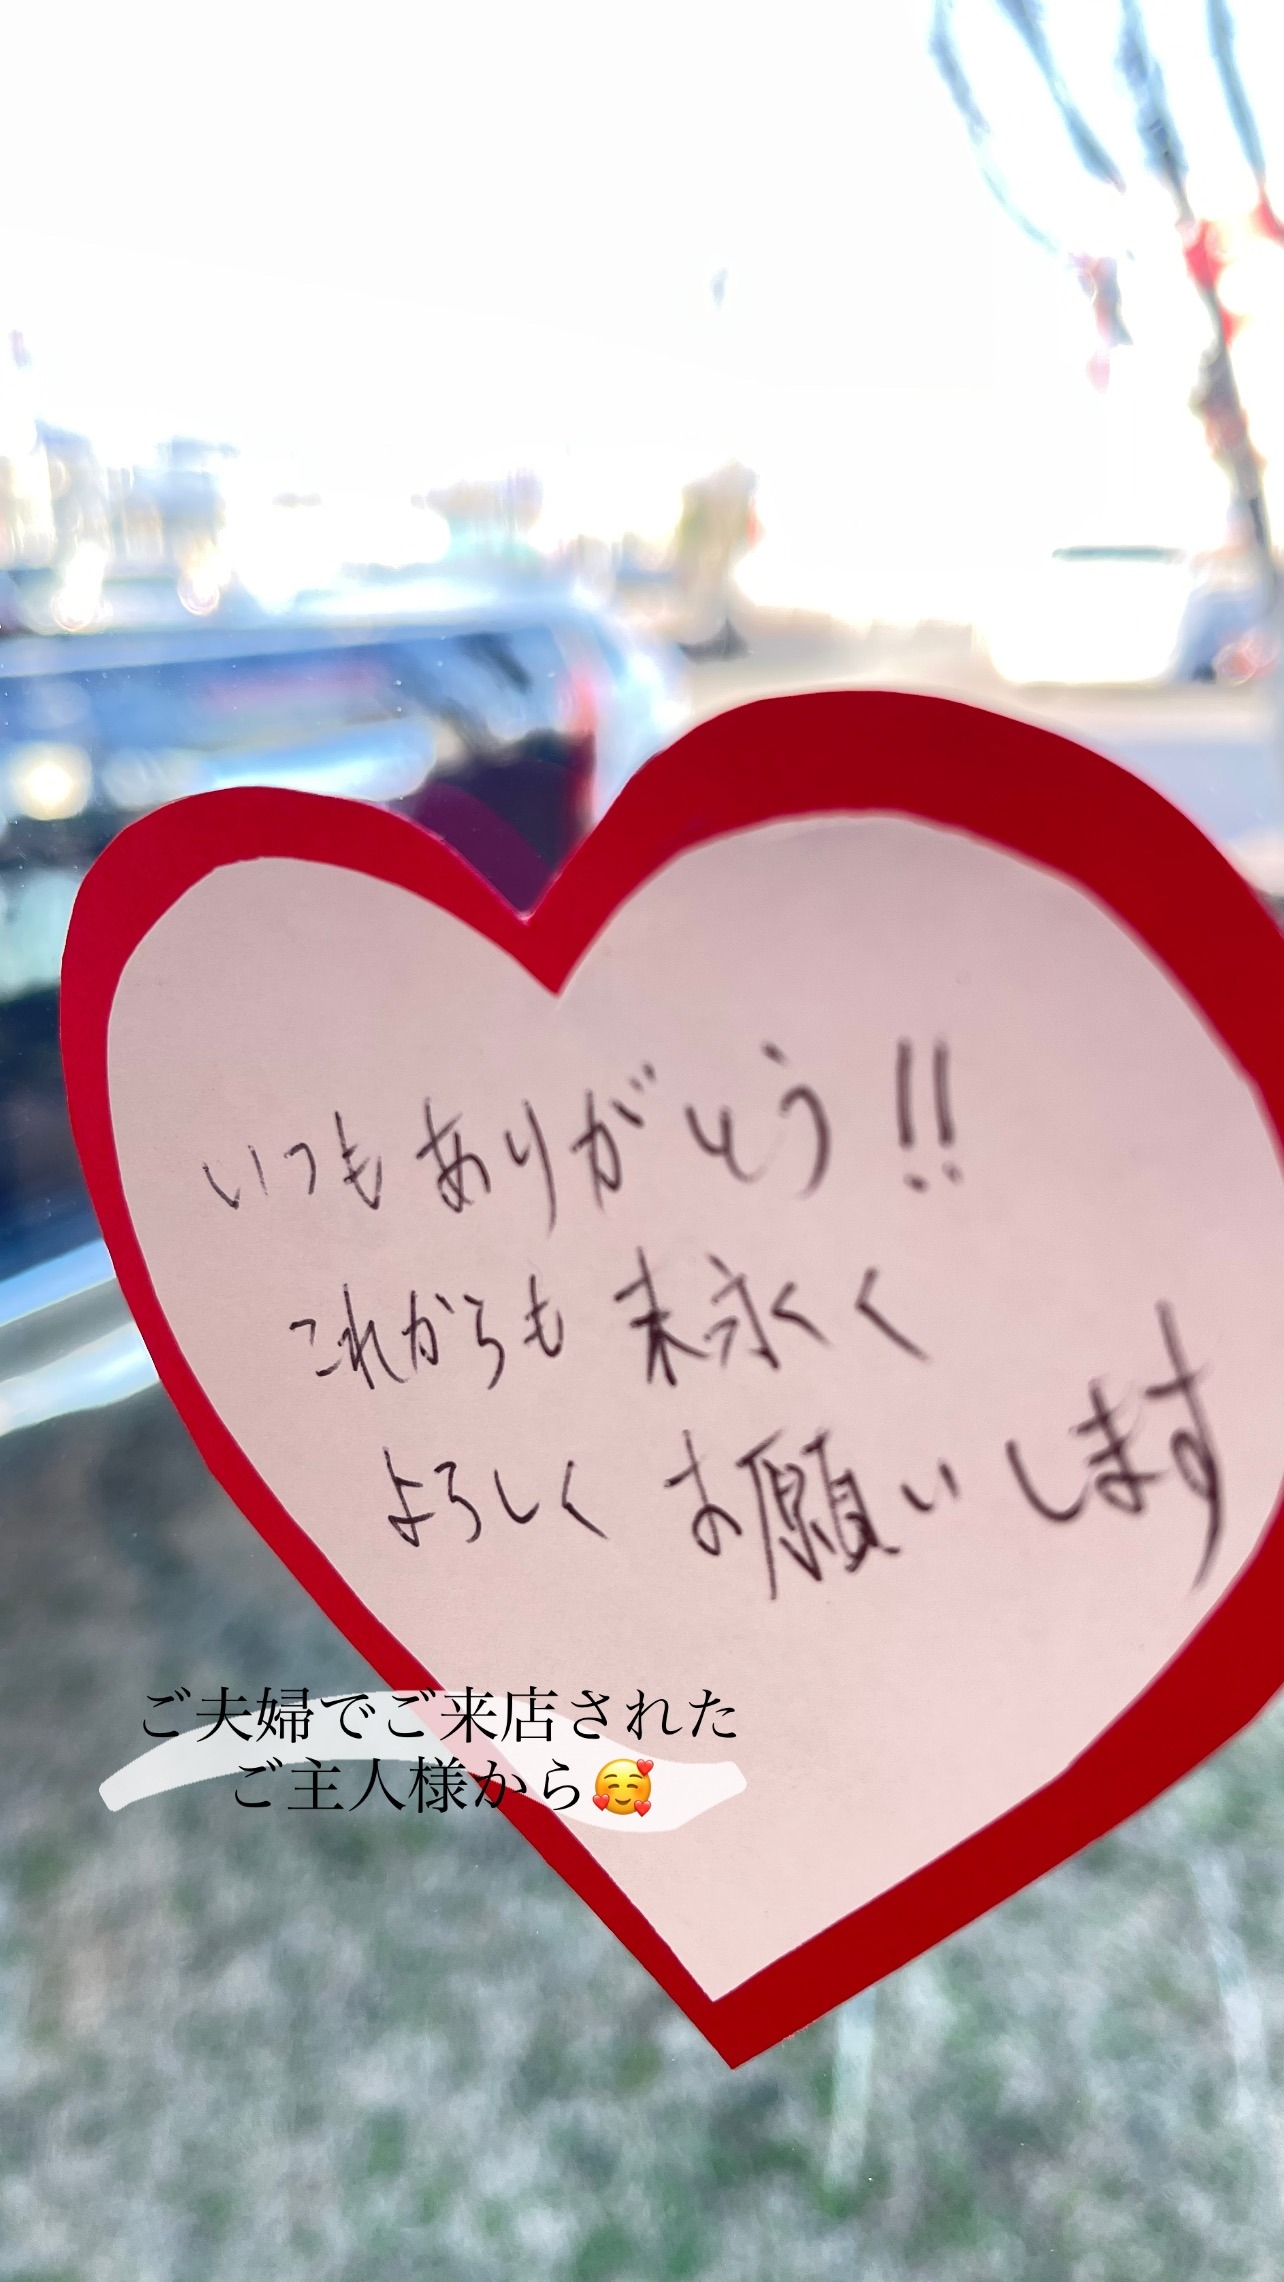 いつもありがとう!!
これからも末永くく
よろしくお願いします
ご夫婦でご来店された
ご主人様から🥰